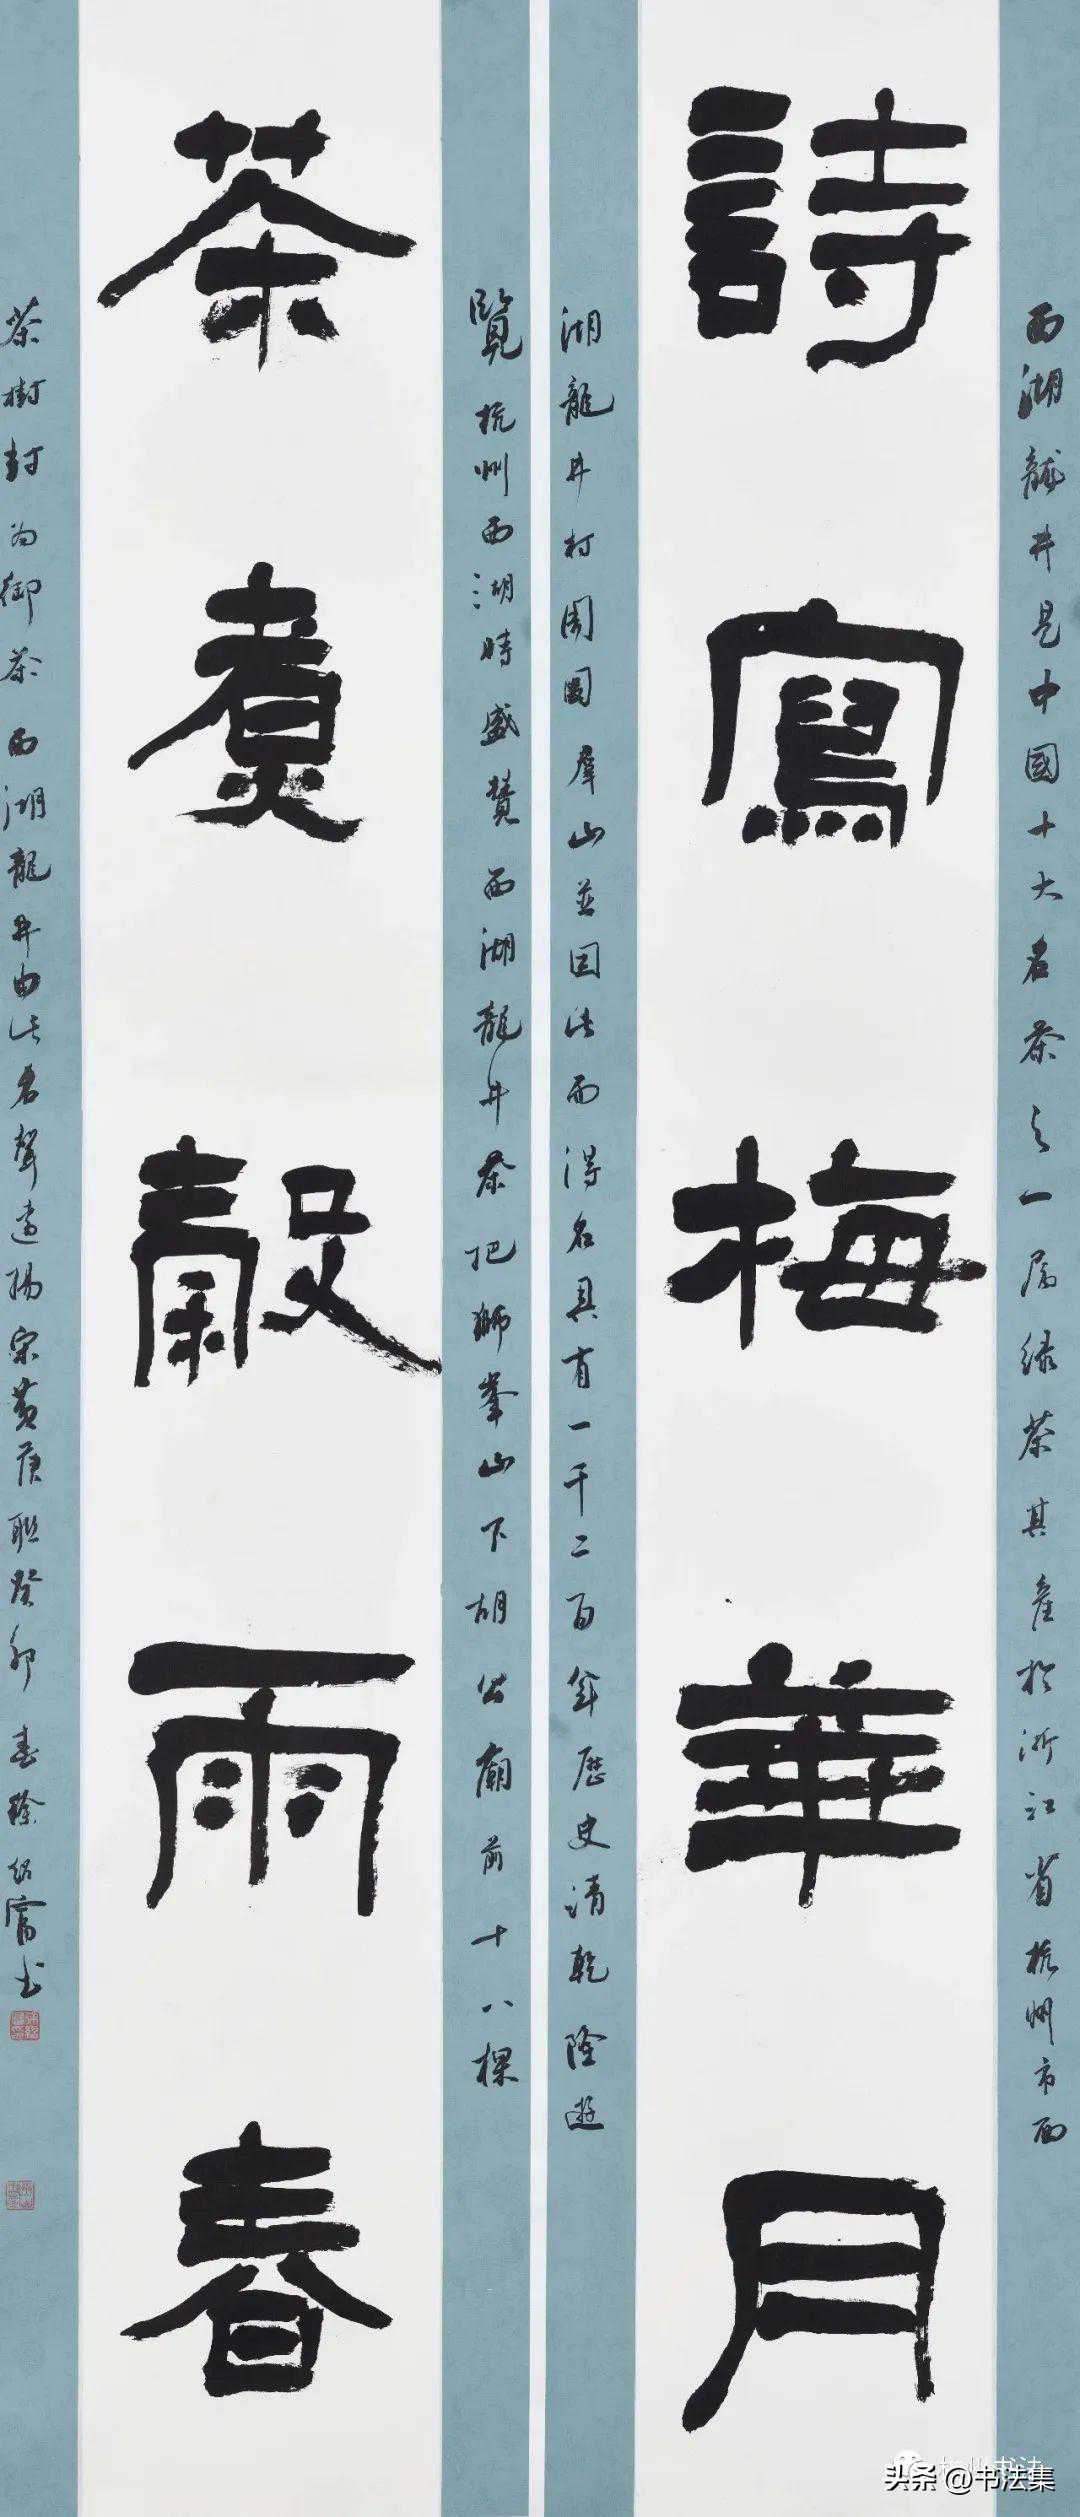 西湖龍井是中國十大名茶之一属绿茶其產於浙江省杭州市西
詩寫梅華月
湖龍井村周圍羣山並因此而得名具有一千二百年歷史清乾隆遊
覽杭州西湖時盛贊西湖龍井茶把獅峯山下胡公廟前十八棵
茶煮穀雨春
茶樹封為御茶西湖龍井由此名聲遠揚宋黃庚联癸卯春徐紹富书
头条 @书法集